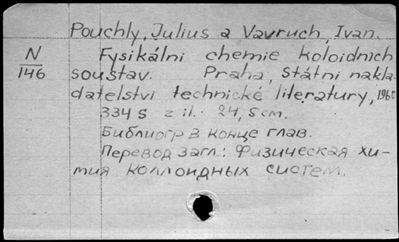 Pouchly, Julius a Vavruch, Ivan.
N
146
Fysikálni chemie koloidnich
soustav. Praha, Státni nakla-
datelstvi technické literatury, 1960
334 s z il. 24,5 cm.
Библиогр в конце глав.
Перевод загл.: Физическая хи-
мия коллоидных систем.